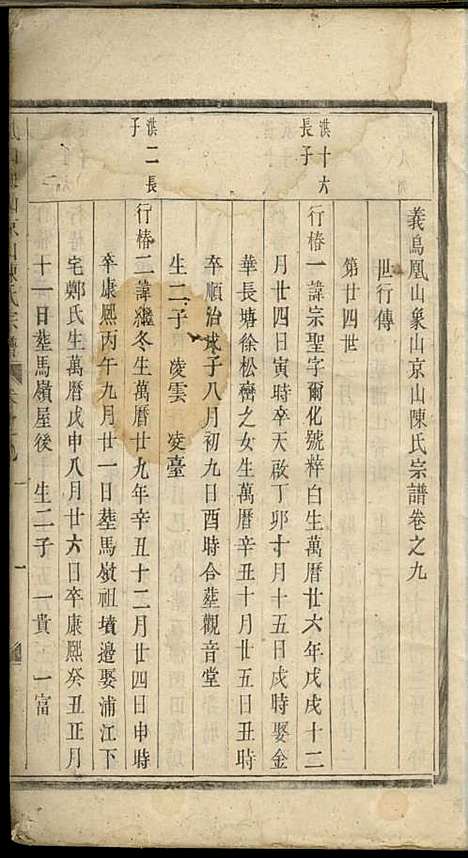 義烏凰山象山京山陳氏宗譜卷之九
世行傳
第廿四世
洪十六
長子
行椿一諱宗聖字爾化號粹白生萬曆廿六年戊戌十二
月廿四日寅時卒天啟丁卯十月十五日戌時娶金
華長塘徐松齊之女生萬曆辛丑十月廿五日丑時
卒順治戊子八月初九日酉時合塟觀音堂
生二子 凌雲 凌臺
洪二長
子
行椿二諱繼冬生萬曆廿九年辛丑十二月廿四日申時
卒康熙丙午九月廿一日塟馬嶺祖墳邊娶浦江下
宅鄭氏生萬曆戊申八月廿六日卒康熙癸丑正月
十一日塟馬嶺屋後 生二子 一貴 一富
山京山陳氏宗譜
卷之九
一